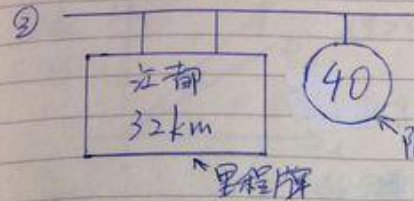 ②
江都
32km
40
里程牌